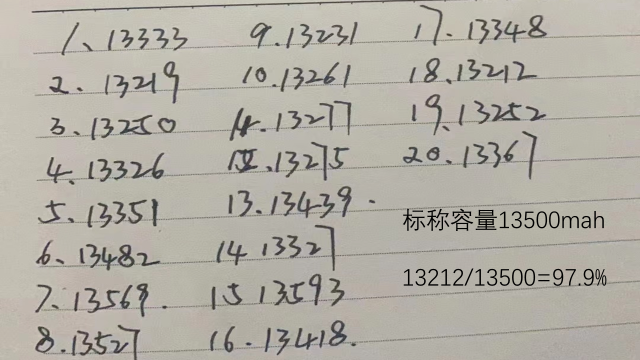 1、13333
2、13219
3、13250
4、13326
5、13351
6、13482
7、13569.
8.13527
9.13231
10.13261
11.13277
12.13275
13.13439.
14 13327
15 13593
16.13418.
17.13348
18.13212
19.13252
20.13367
标称容量13500mah
13212/13500=97.9%